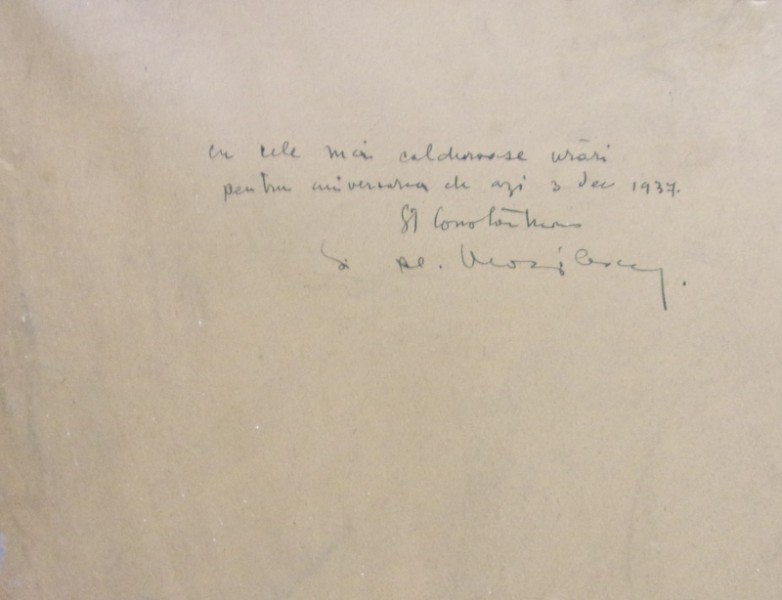 cu cele mai calduroase urări
pentru aniversarea de azi 3 Dec 1937.
Șt Constantinescu
și Al.